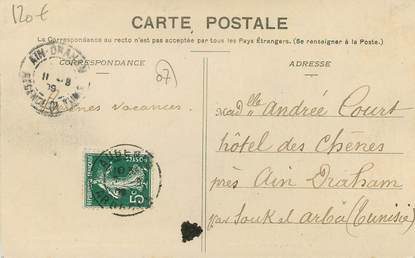 120€
CARTE POSTALE
La Correspondance au recto n'est pas acceptée par tous les Pays Étrangers. (Se renseigner à la Poste.)
CORRESPONDANCE
ADRESSE
AIN-DRAHAM
11 - 8
09
07
Bonnes vacances.
Mad elle Andrée Court
hôtel des Chênes
près Ain Draham
par Souk el arba (Tunisie)
5c
POSTES